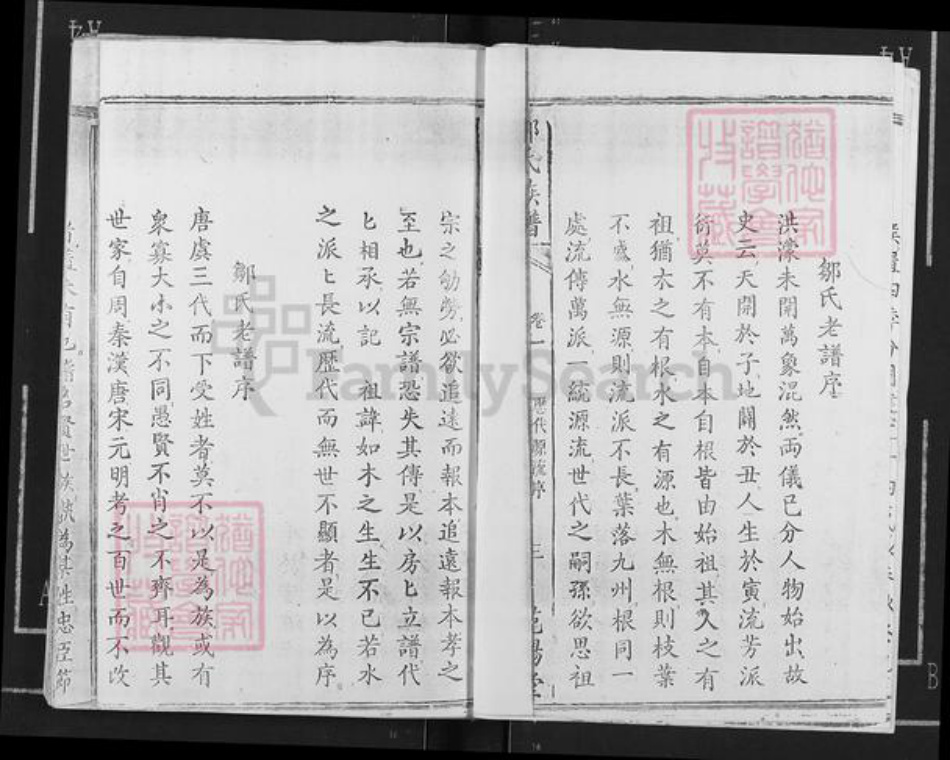 鄒氏老譜序
洪濛未開萬象混然両儀已分人物始出故
史云天開於子地闢於丑人生於寅流芳派
衍莫不有本自本自根皆由始祖其人之有
祖猶木之有根水之有源也木無根則枝葉
不盛水無源則流派不長葉落九州根同一
處流傳萬派一統源流世代之嗣孫欲思祖
氏族譜
卷一
歷代源流序
三
宗之劬勞必欲追遠而報本追遠報本孝之
至也若無宗譜恐失其傳是以房匕立譜代
匕相承以記 祖諱如木之生生不已若水
之派匕長流歷代而無世不顯者是以為序
鄒氏老譜序
唐虞三代而下受姓者莫不以是為族或有
衆寡大小之不同愚賢不肖之不齊耳觀其
世家自周秦漢唐宋元明考之百世而不改
姓忠臣節
猶他家
譜學會
收藏
猶他家
譜學會
收藏
FamilySearch